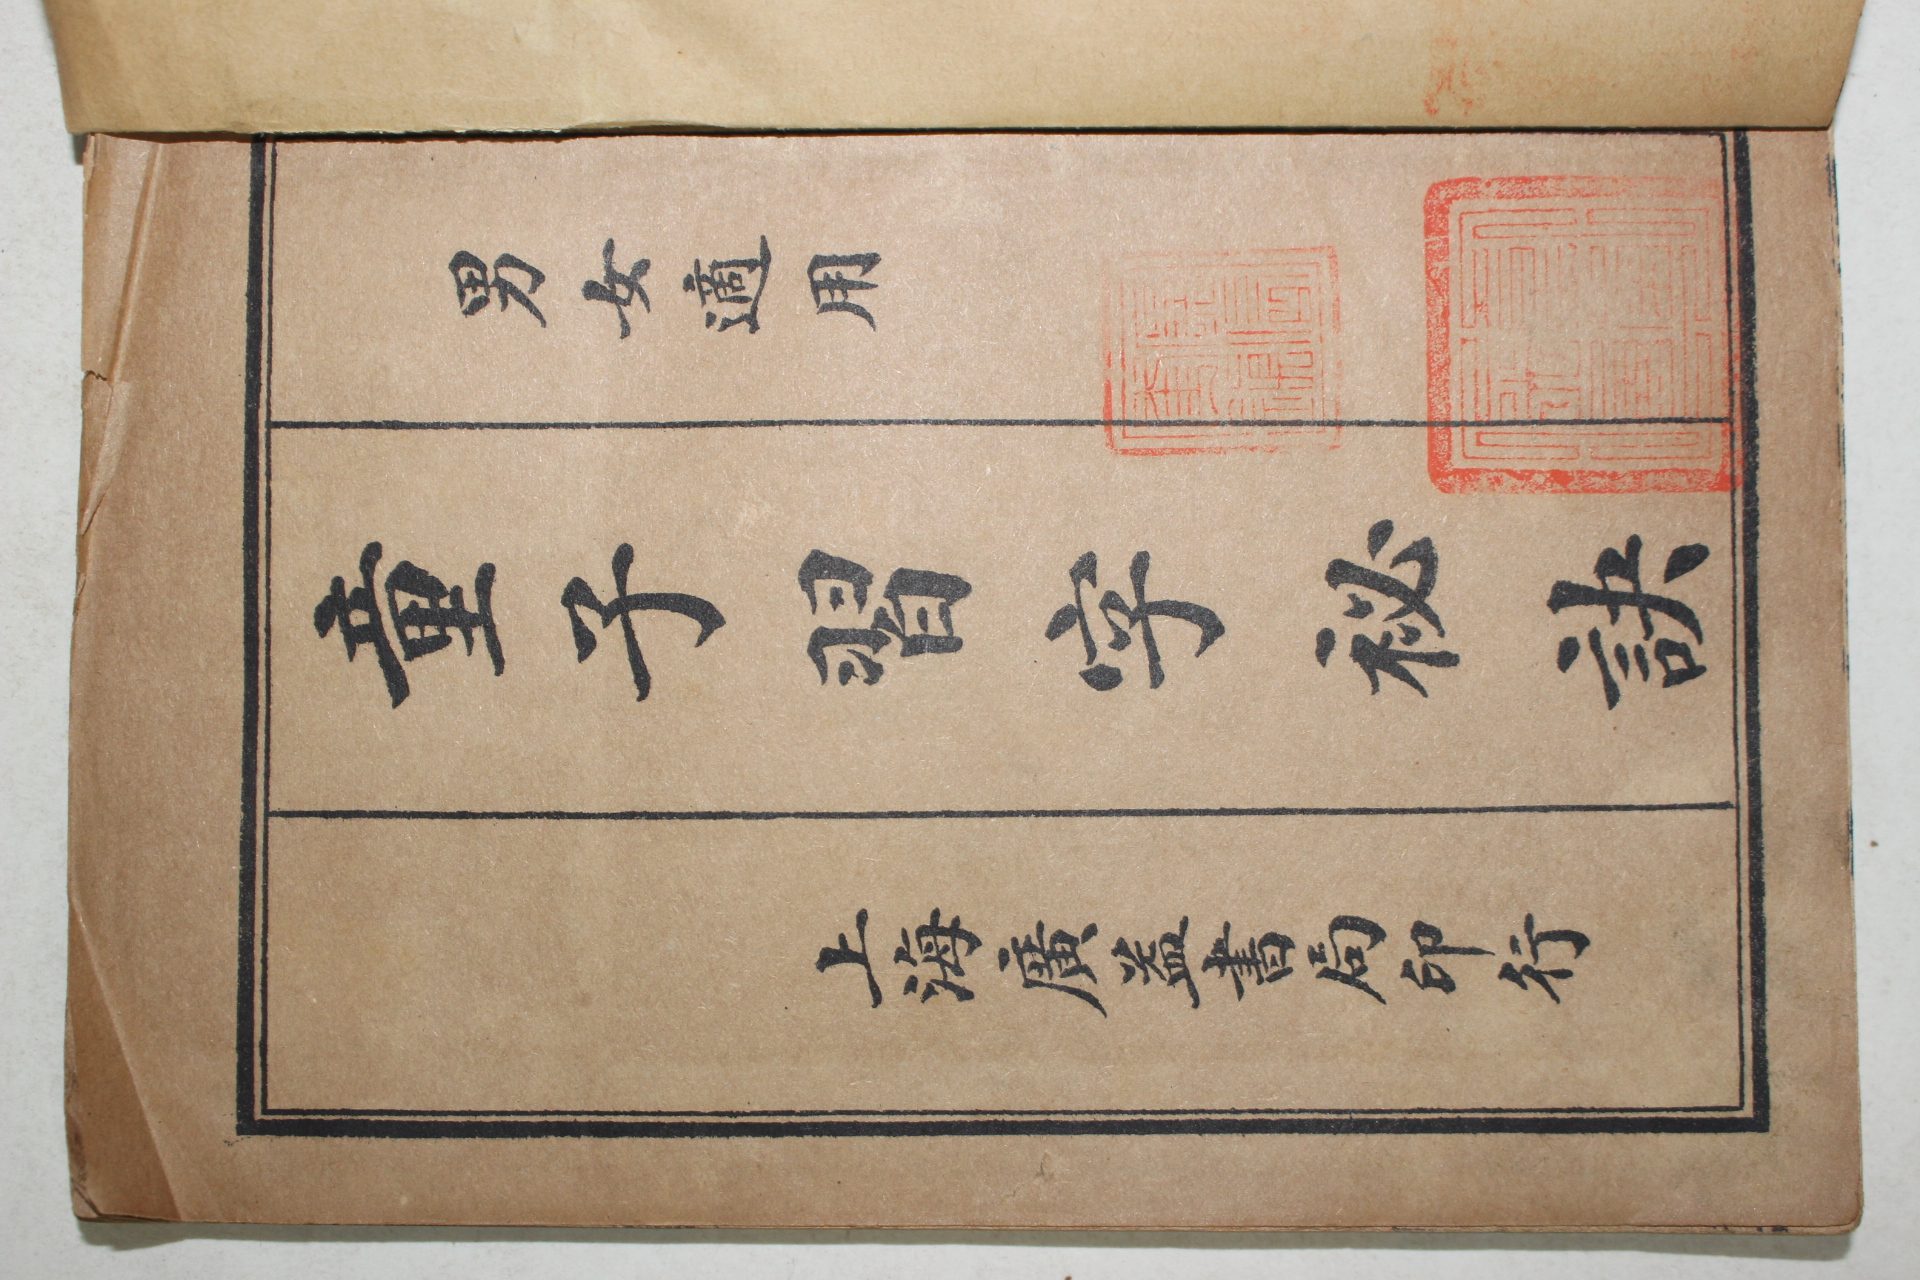 男女適用
童子習字秘訣
上海廣益書局印行